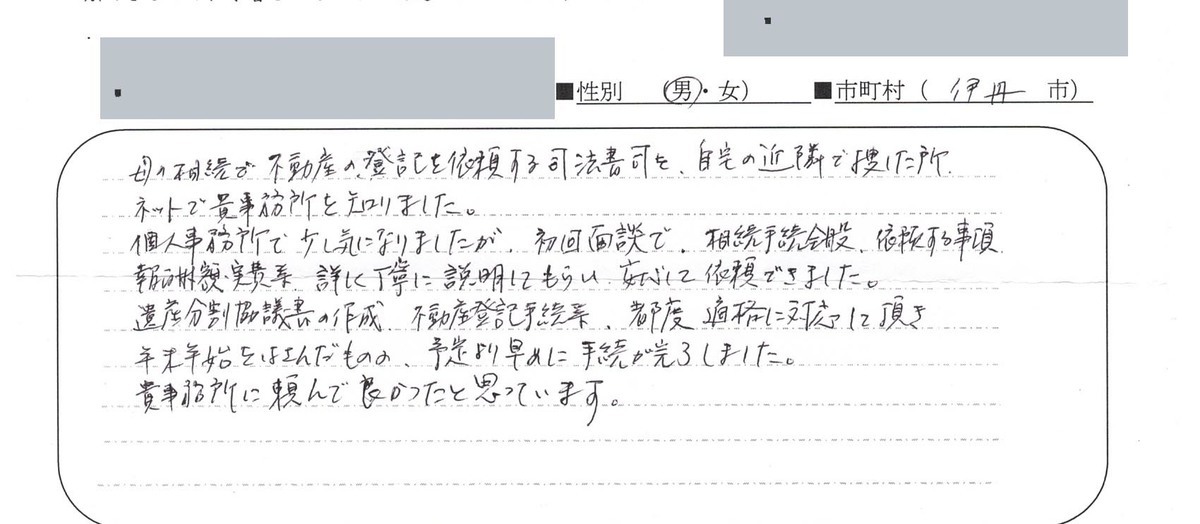 ■性別 (男・女) ■市町村 ( 伊丹 市)
母の相続で不動産の登記を依頼する司法書司を、自宅の近隣で捜した所
ネットで貴事務所を知りました。
個人事務所で少し気になりましたが、初回面談で、相続手続全般、依頼する事項
報酬額・実費系、詳しく丁寧に説明してもらい、安心して依頼できました。
遺産分割協議書の作成、不動産登記手続系、都度適格に対応して頂き
年末年始をはさんだものの、予定より早めに手続が完了しました。
貴事務所に頼んで良かったと思っています。